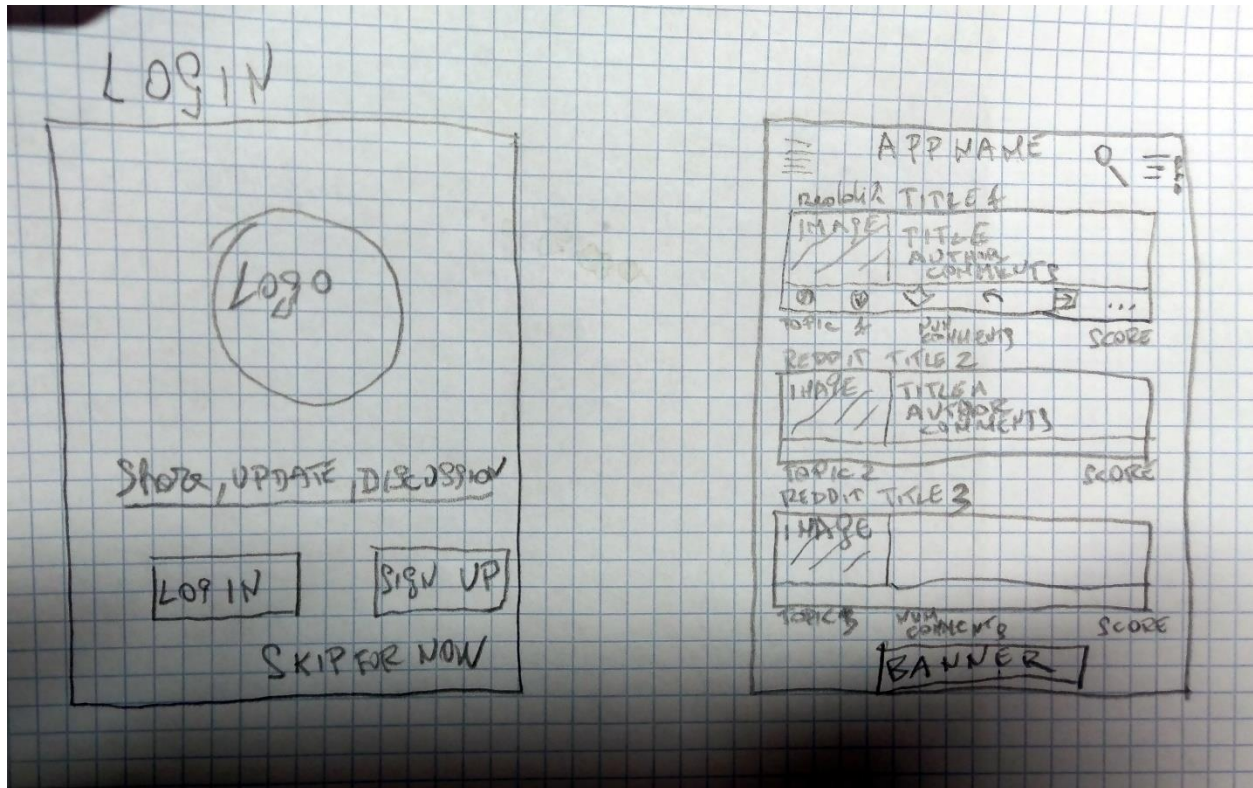 LOGIN
Logo
Share, UPDATE, DISCUSSION
LOG IN
SIGN UP
SKIP FOR NOW
APP NAME
Reddit TITLE 1
IMAGE
TITLE
AUTHOR
COMMENTS
...
TOPIC 1
NUM
COMMENTS
SCORE
REDDIT TITLE 2
IMAGE
TITLE
AUTHOR
COMMENTS
TOPIC 2
SCORE
REDDIT TITLE 3
IMAGE
TOPIC 3
NUM
COMMENTS
SCORE
BANNER